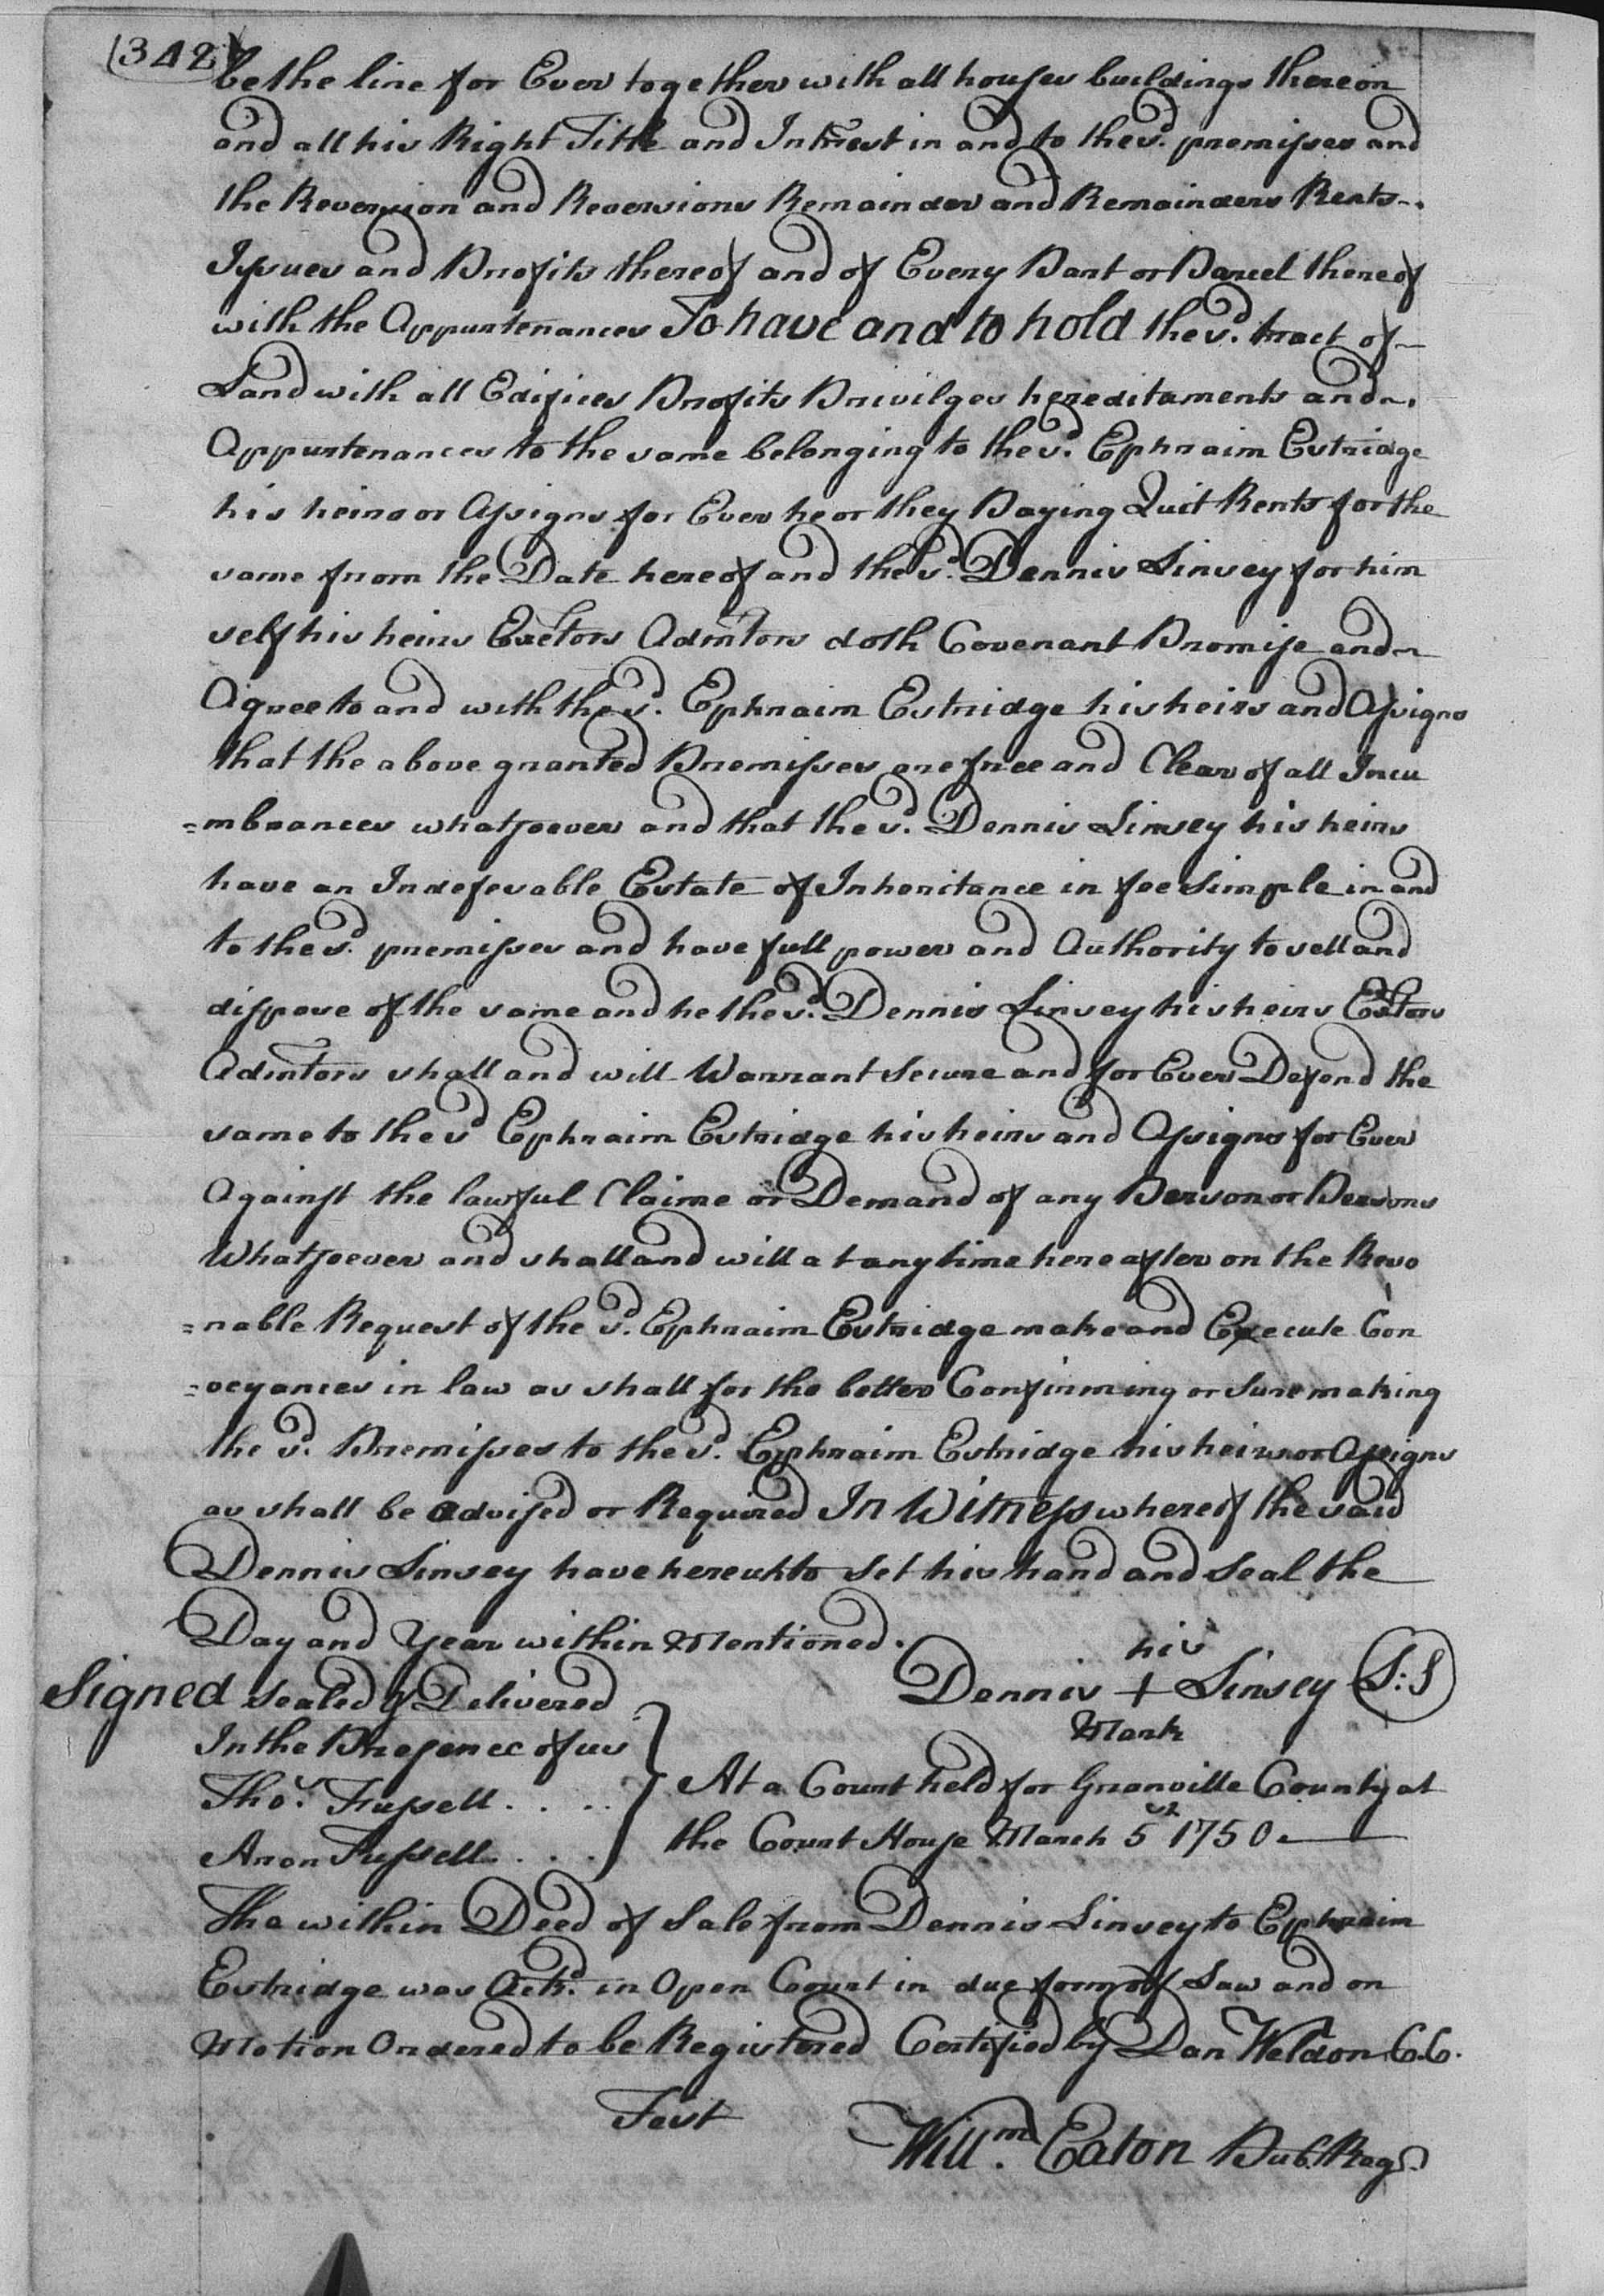 (342)
be the line for Ever together with all houses buildings thereon
and all his Right Title and Intrest in and to the sd. premisses and
the Reversion and Reversions Remainder and Remainders Rents
Issues and Profits thereof and of Every Part or Parcel thereof
with the Appurtenances To have and to hold the sd. tract of
Land with all Edifices Profits Privilges hereditaments and
Appurtenances to the same belonging to the sd. Ephraim Estridge
his heirs or Assigns for Ever he or they Paying Quit Rents for the
same from the Date hereof and the sd. Dennis Linsey for him
self his heirs Exectors Admtors doth Covenant Promise and
Agree to and with the sd. Ephraim Estridge his heirs and Assigns
that the above granted Premisses are free and Clear of all Incu
=mbrances whatsoever and that the sd. Dennis Linsey his heirs
have an Indefesable Estate of Inheritance in fee Simple in and
to the sd. premisses and have full power and Authority to sell and
dispose of the same and he the sd. Dennis Linsey his heirs Extors
Admtors shall and will Warrant Secure and for Ever Defend the
same to the sd Ephraim Estridge his heirs and Assigns for Ever
Against the lawful Claime or Demand of any Person or Persons
Whatsoever and shall and will at any time hereafter on the Reso
=nable Request of the sd. Ephraim Estridge make and Execute Con
=veyances in law as shall for the better Confirming or Sure making
the sd. Premisses to the sd. Ephraim Estridge his heirs or Assigns
as shall be advised or Required In Witness whereof the said
Dennis Linsey have hereunto Set his hand and Seal the
Day and Year within Mentioned.
his
Signed Sealed & Delivered Dennis + Linsey (S:S)
In the Presence of us Mark
Thos. Fussell . . . .
Aron Fussell . . .
At a Court held for Granville County at
the Court House March 5th 1750
The within Deed of Sale from Dennis Linsey to Ephraim
Estridge was Ackd. in Open Court in due form of Law and on
Motion Ordered to be Registered Certified by Dan Weldon C.C.
Test
Willm. Eaton Pub. Reg.